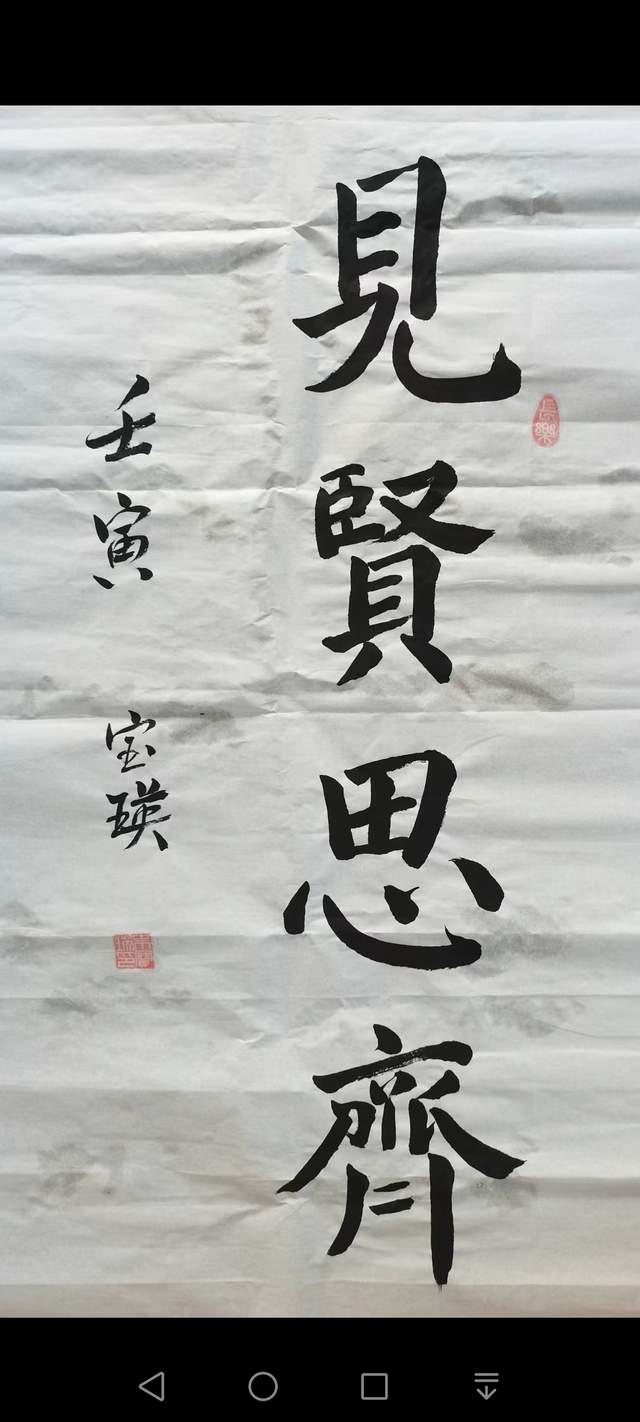 見賢思齊
長樂
壬寅
宝瑛